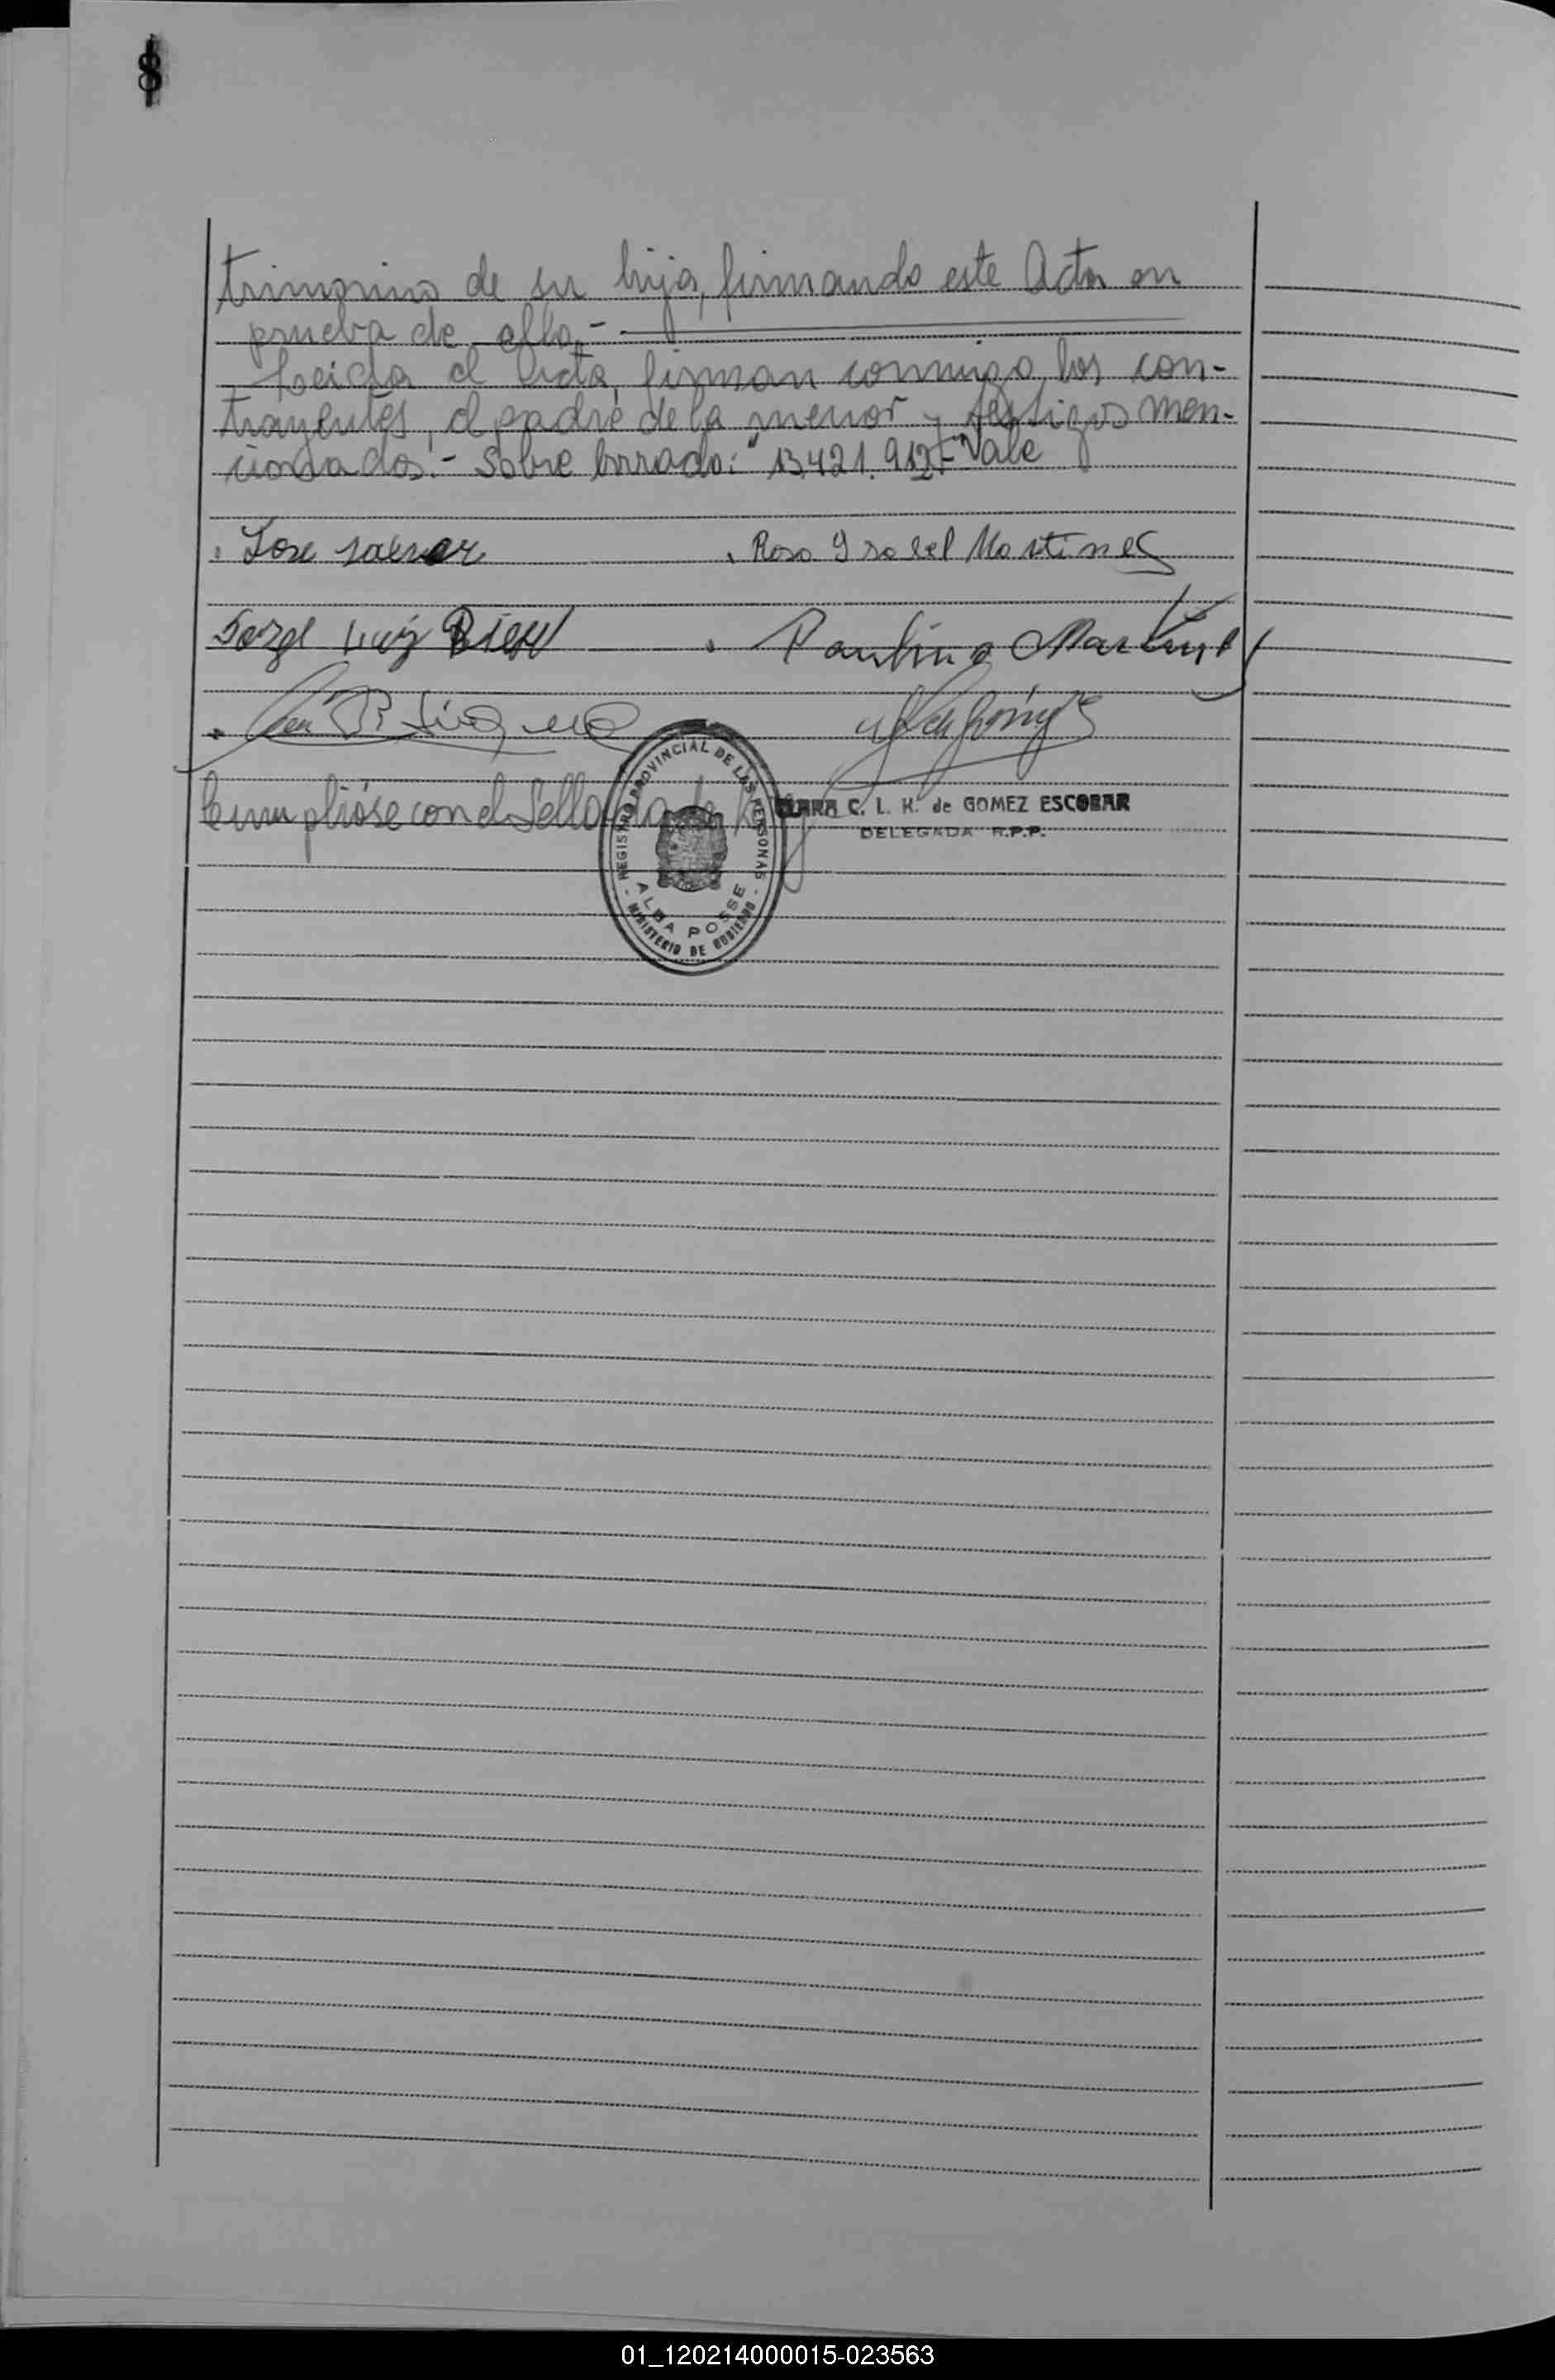 trimonio de su hija, firmando este Acta en
prueba de ello.-
Leida el Acta, firman conmigo, los con-
trayentes, el padre de la menor y testigos men-
cionados.- Sobre borrado: "13.421.912"- Vale
Rosa Ysabel Martinez
Jorge Luiz
Paulino Martinez
Cumplióse con el Sellado de Ley
CLARA C. L. K. de GOMEZ ESCOBAR
DELEGADA R.P.P.
REGISTRO PROVINCIAL DE LAS PERSONAS
ALBA POSSE
MINISTERIO DE GOBIERNO
01_120214000015-023563